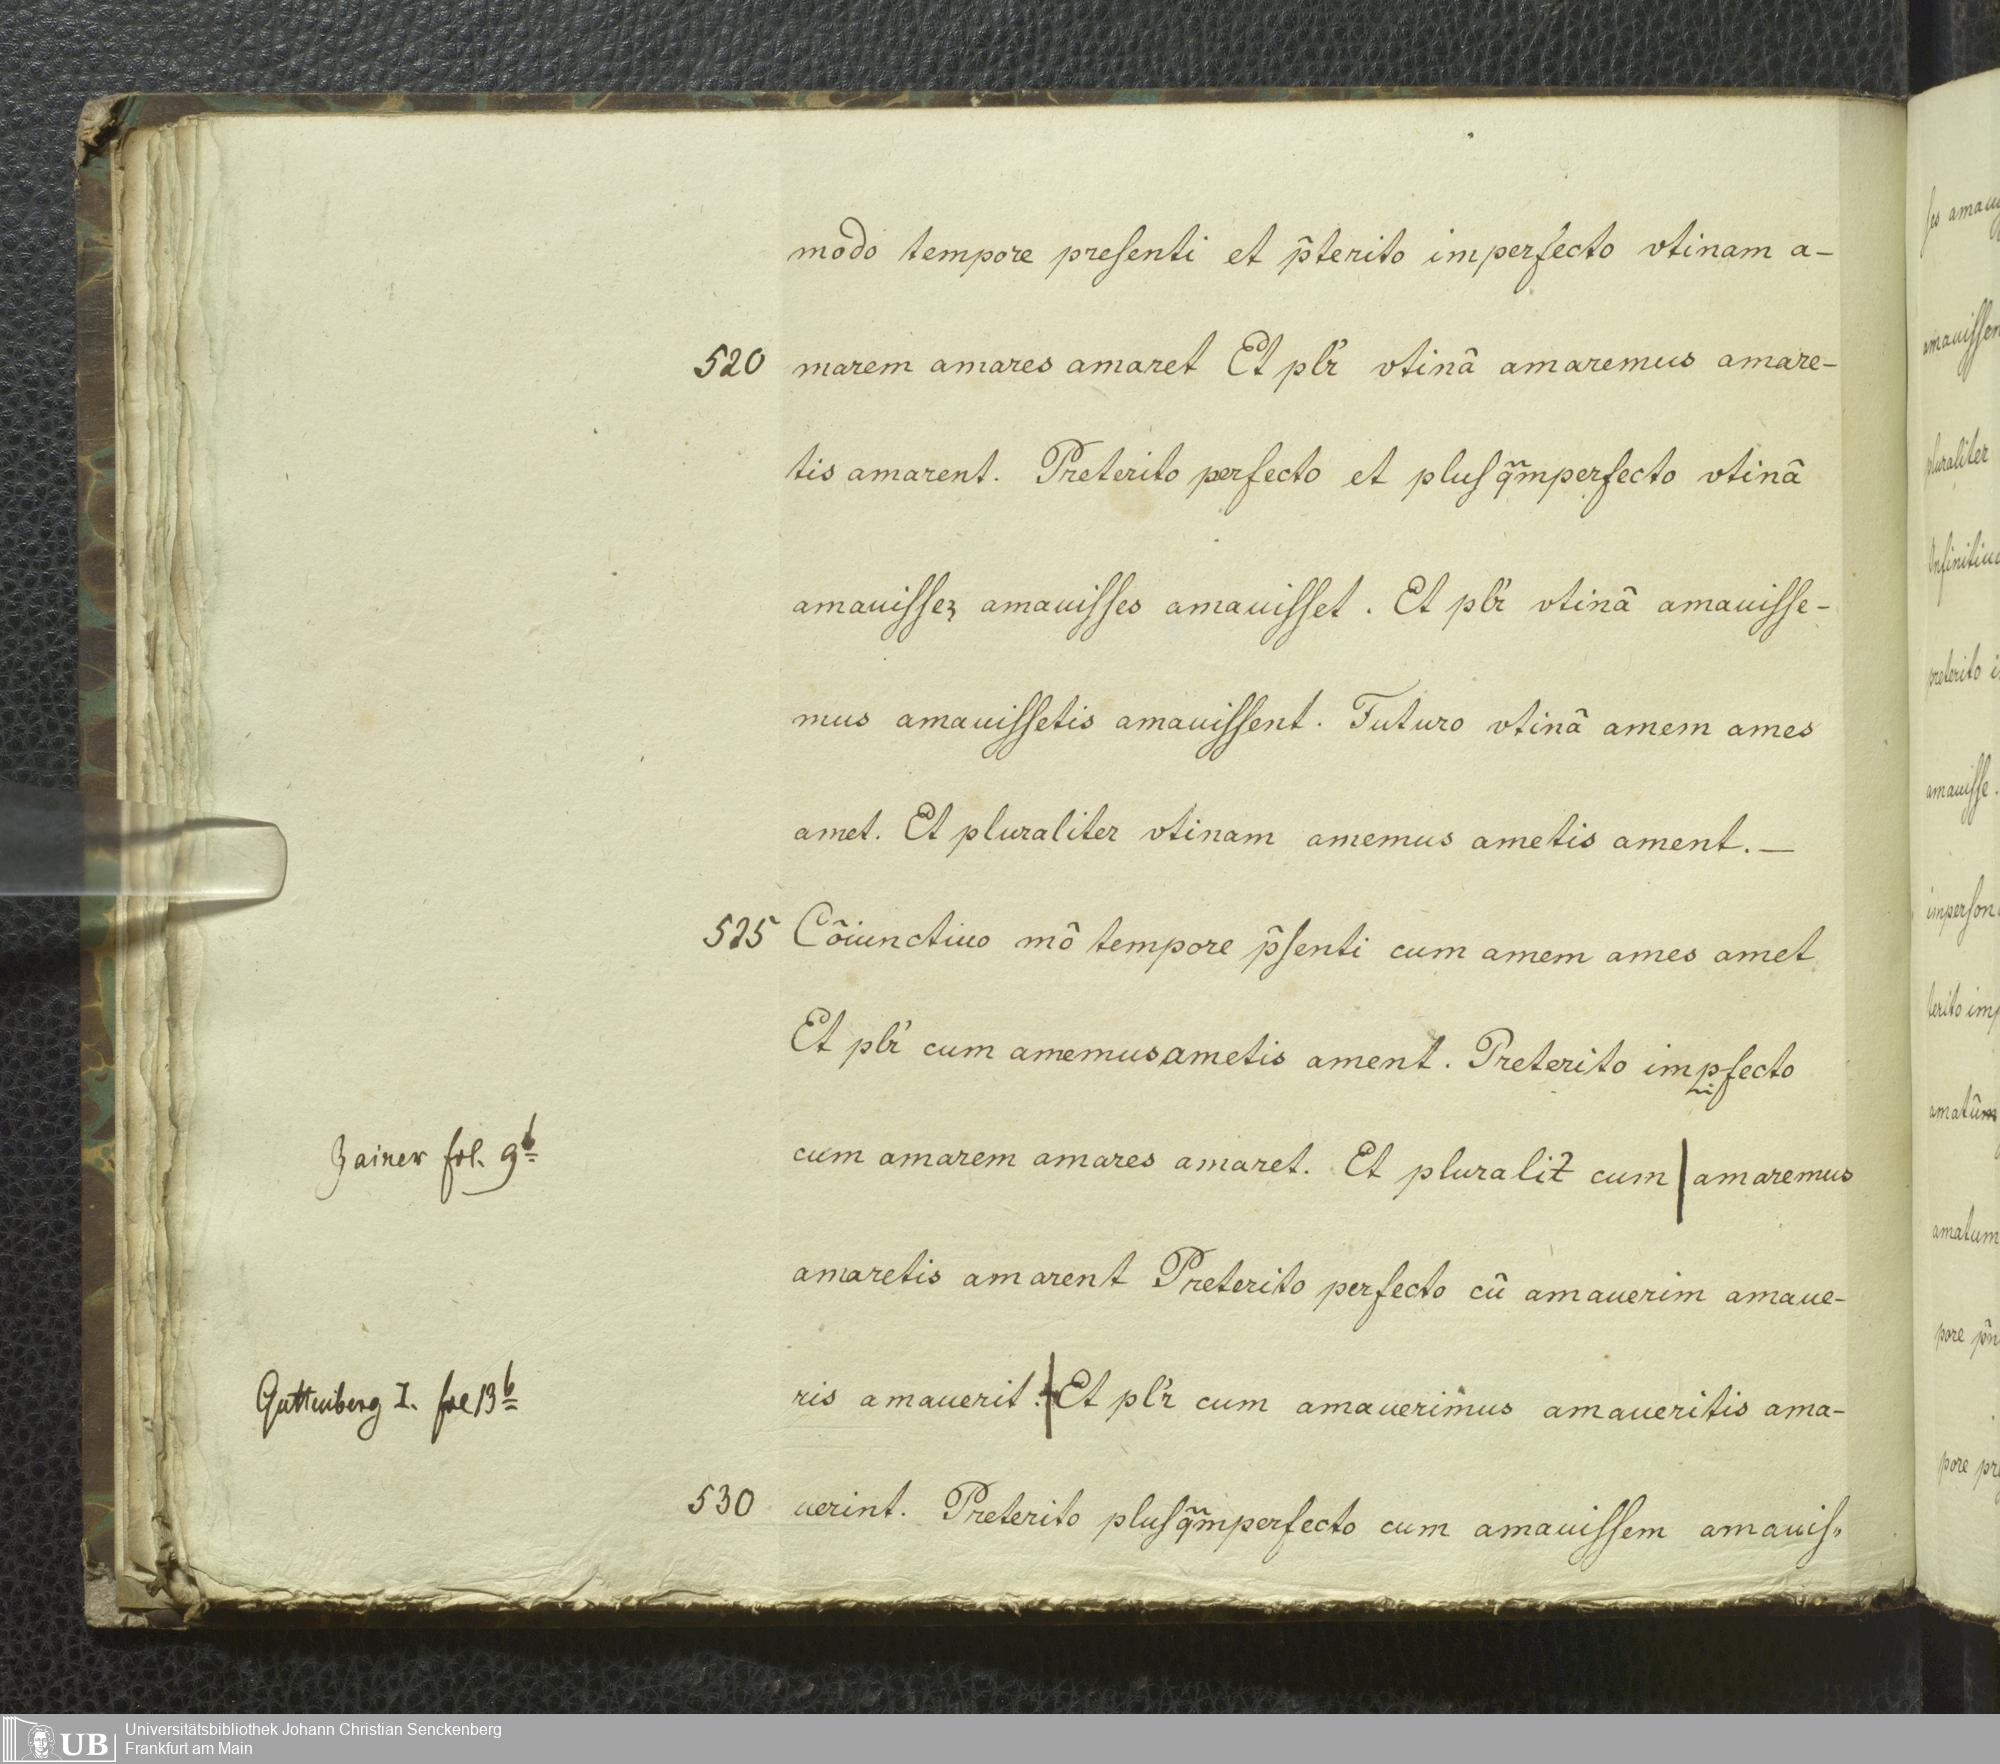 modo tempore preſenti et p̄terito imperfecto vtinam a-
520 marem amares amaret Et pl'r vtinā amaremus amare-
tis amarent. Preterito perfecto et pluſq̄mperfecto vtinā
amauiſſeʒ amauiſſes amauiſſet. Et pl'r vtinā amauiſſe-
mus amauiſſetis amauiſſent. Futuro vtinā amem ames
amet. Et pluraliter vtinam amemus ametis ament.—
525 Cōiunctiuo mō tempore p̄ſenti cum amem ames amet
Et pl'r cum amemus ametis ament. Preterito imꝑfecto
Zainer fol. 9b
cum amarem amares amaret. Et pluraliꝫ cum | amaremus
amaretis amarent Preterito perfecto cū amauerim amaue-
Guttenberg I. fol 13b
ris amauerit. | Et pl'r cum amauerimus amaueritis ama-
530 uerint. Preterito pluſq̄mperfecto cum amauiſſem amauiſ-
ſes
amauiſſen
pluraliter
Infinitiuo
preterito i
amauiſſe.
imperſon
terito imp
amatūm
amatum
pore
pore
UB Universitätsbibliothek Johann Christian Senckenberg
Frankfurt am Main